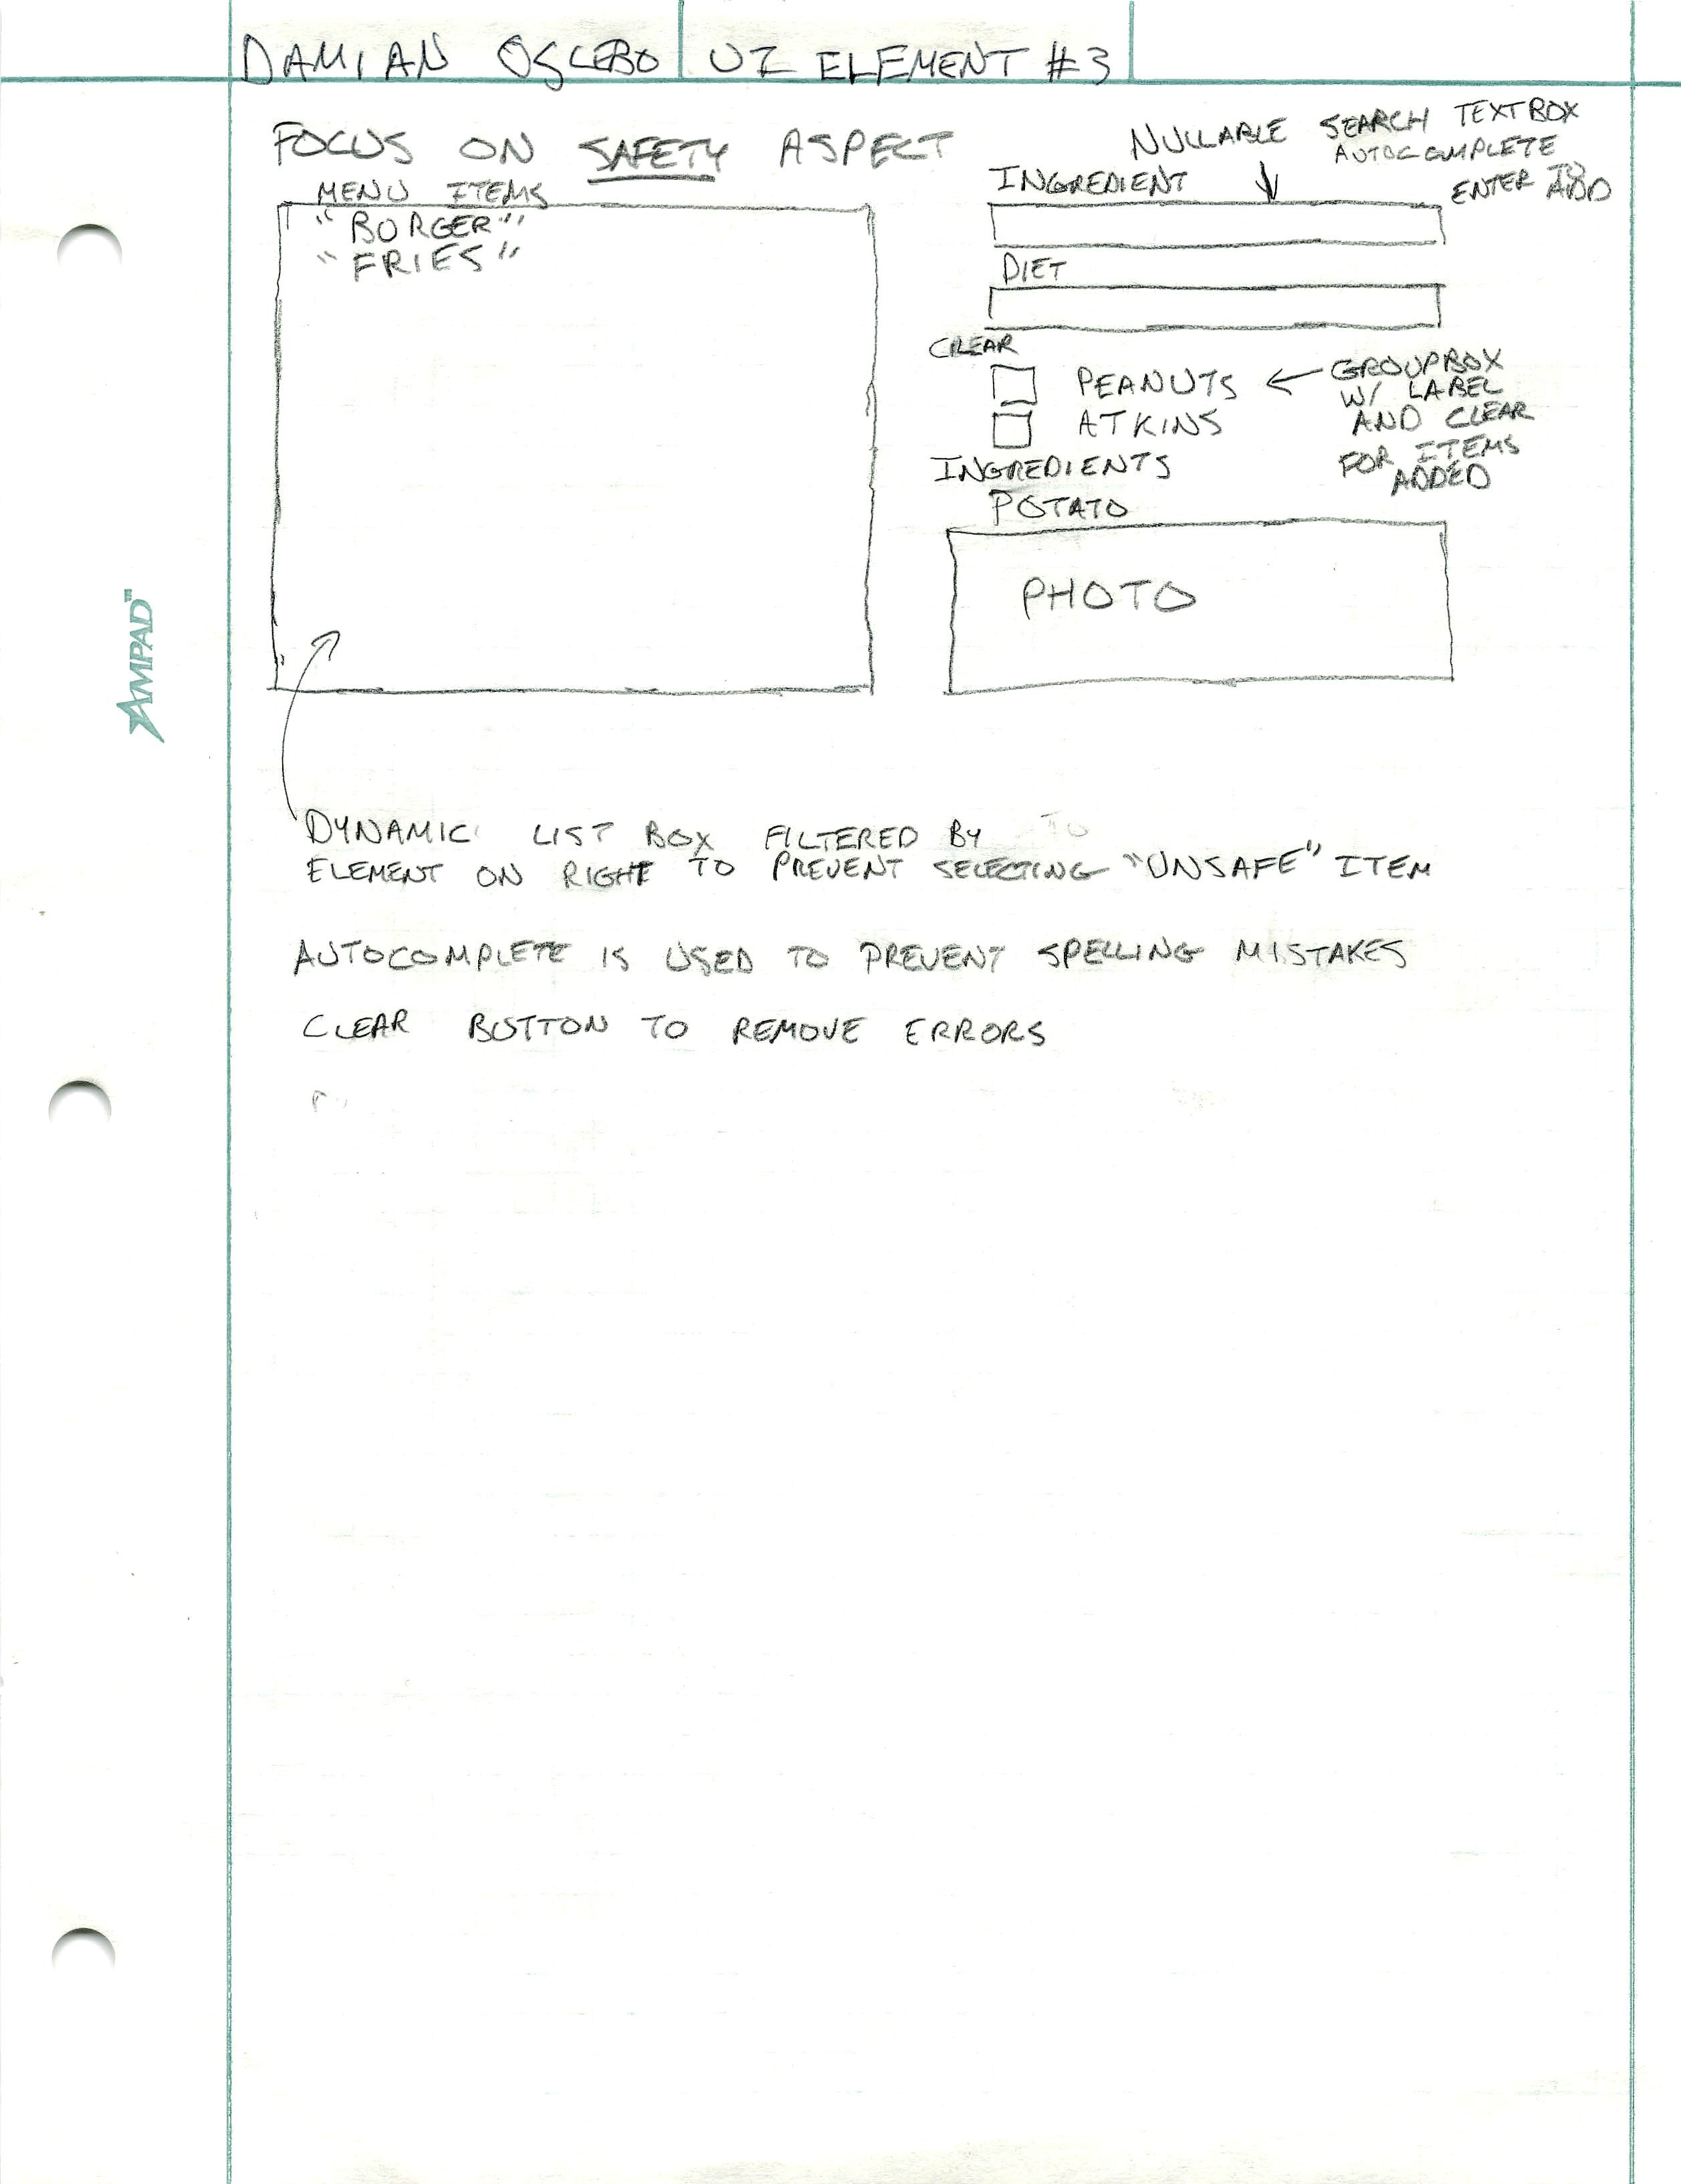 DAMIAN OSLEBO UI ELEMENT #3
FOCUS ON SAFETY ASPECT
MENU ITEMS
"BORGER"
"FRIES"
NULLABLE SEARCH TEXTBOX
AUTOCOMPLETE
ENTER TO ADD
INGREDIENT
DIET
CLEAR
PEANUTS
ATKINS
GROUPBOX
W/ LABEL
AND CLEAR
FOR ITEMS
ADDED
INGREDIENTS
POTATO
PHOTO
AMPAD™
DYNAMIC LIST BOX FILTERED BY TO
ELEMENT ON RIGHT TO PREVENT SELECTING "UNSAFE" ITEM
AUTOCOMPLETE IS USED TO PREVENT SPELLING MISTAKES
CLEAR BUTTON TO REMOVE ERRORS